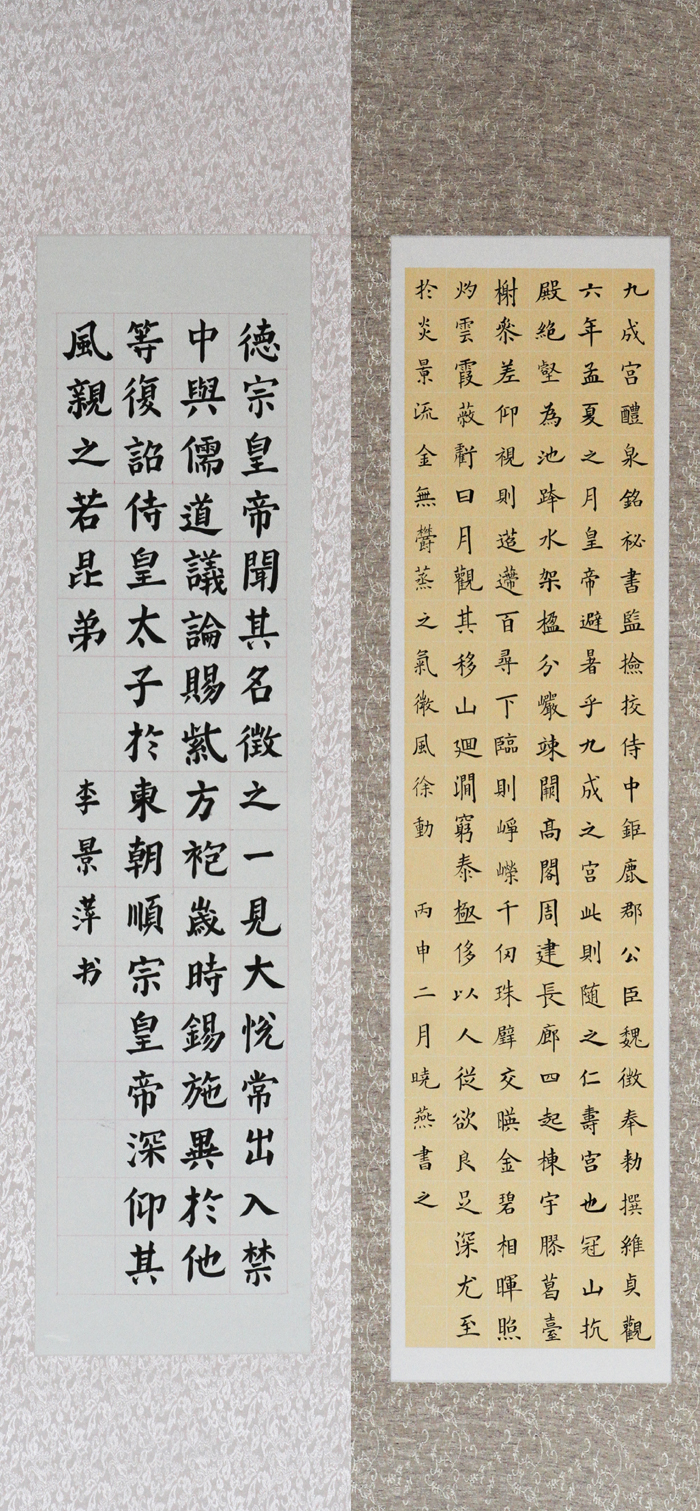 九成宮醴泉銘祕書監撿挍侍中鉅鹿郡公臣魏徵奉勅撰維貞觀
六年孟夏之月皇帝避暑乎九成之宮此則随之仁壽宮也冠山抗
殿絕壑為池跨水架楹分巖竦闕高閣周建長廊四起棟宇膠葛臺
榭參差仰視則迢遰百尋下臨則崢嶸千仞珠璧交暎金碧相暉照
灼雲霞蔽虧日月觀其移山廻澗窮泰極侈以人從欲良足深尤至
於炎景流金無鬱蒸之氣微風徐動 丙申二月曉燕書之
德宗皇帝聞其名徵之一見大悅常出入禁
中與儒道議論賜紫方袍歲時錫施異於他
等復詔侍皇太子於東朝順宗皇帝深仰其
風親之若昆弟 李景萍书